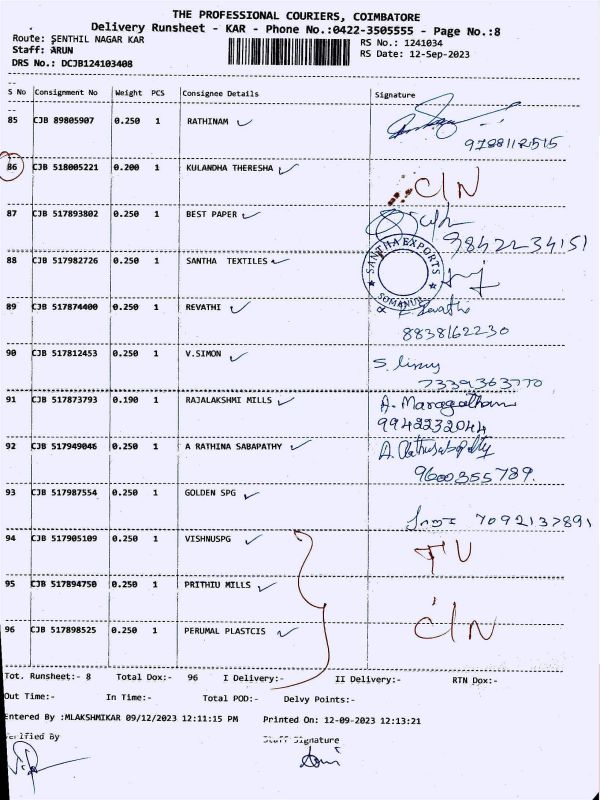 THE PROFESSIONAL COURIERS, COIMBATORE
Delivery Runsheet - KAR - Phone No.:0422-3505555 - Page No.:8
Route: SENTHIL NAGAR KAR
RS No.: 1241034
Staff: ARUN
RS Date: 12-Sep-2023
DRS No.: DCJB124103408
S No Consignment No Weight PCS Consignee Details Signature
85 CJB 89805907 0.250 1 RATHINAM
9788112515
86 CJB 518005221 0.200 1 KULANDHA THERESHA C/N
87 CJB 517893802 0.250 1 BEST PAPER
9842234151
88 CJB 517982726 0.250 1 SANTHA TEXTILES
SANTHA EXPORTS
SOMANUR
89 CJB 517874400 0.250 1 REVATHI
8838162230
90 CJB 517812453 0.250 1 V.SIMON
7339363770
91 CJB 517873793 0.190 1 RAJALAKSHMI MILLS A. Maragatham
9942232044
92 CJB 517949046 0.250 1 A RATHINA SABAPATHY
9600355789.
93 CJB 517987554 0.250 1 GOLDEN SPG
7092137891
94 CJB 517905109 0.250 1 VISHNUSPG
95 CJB 517894750 0.250 1 PRITHIU MILLS
96 CJB 517898525 0.250 1 PERUMAL PLASTCIS C/N
Tot. Runsheet:- 8 Total Dox:- 96 I Delivery:- II Delivery:- RTN Dox:-
Out Time:- In Time:- Total POD:- Delvy Points:-
Entered By :MLAKSHMIKAR 09/12/2023 12:11:15 PM Printed On: 12-09-2023 12:13:21
Verified By Staff Signature